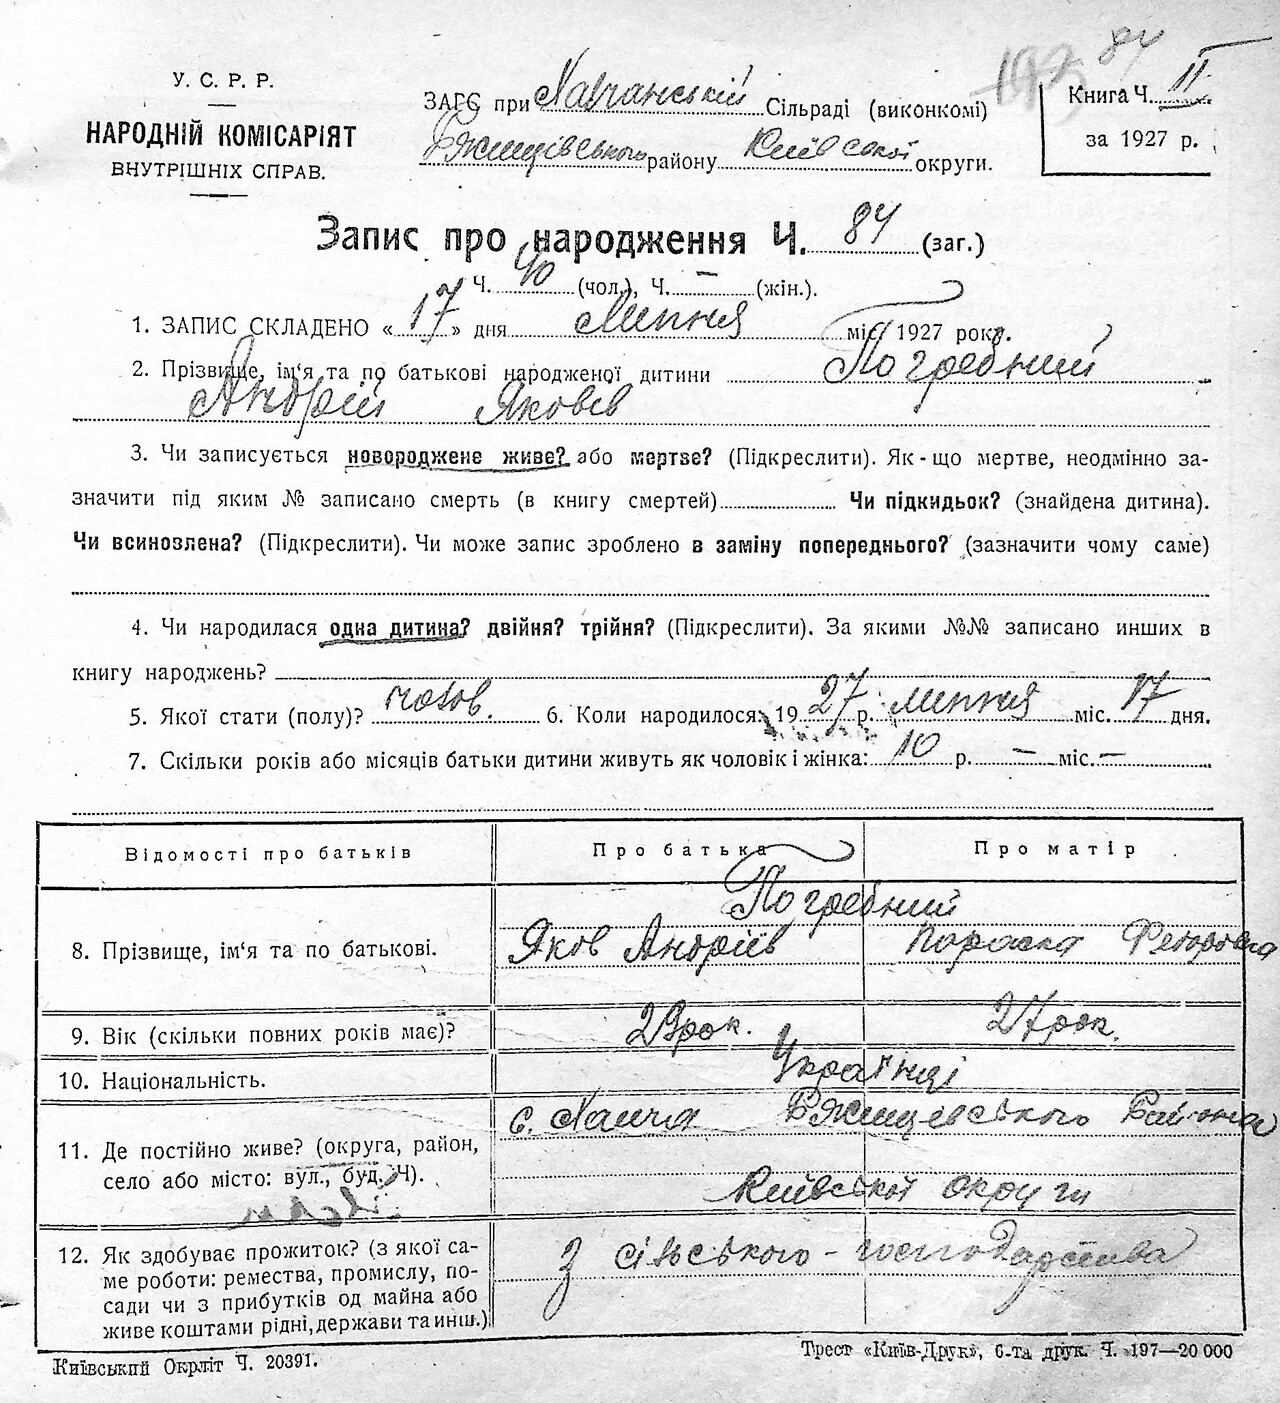 У. С. Р. Р.
НАРОДНІЙ КОМІСАРІЯТ
ВНУТРІШНІХ СПРАВ.
84
ЗАГС при Хавчанській Сільраді (виконкомі)
Ржищівського району Київської округи.
Книга Ч. II
за 1927 р.
Запис про народження Ч. 84 (заг.)
Ч. 40 (чол.), Ч. — (жін.).
1. ЗАПИС СКЛАДЕНО « 17 » дня Липня міс. 1927 року.
2. Прізвище, ім'я та по батькові народженої дитини Погребний
Андрій Яковів
3. Чи записується новороджене живе? або мертве? (Підкреслити). Як-що мертве, неодмінно за-
значити під яким № записано смерть (в книгу смертей) Чи підкидьок? (знайдена дитина).
Чи всиновлена? (Підкреслити). Чи може запис зроблено в заміну попереднього? (зазначити чому саме)
4. Чи народилася одна дитина? двійня? трійня? (Підкреслити). За якими №№ записано инших в
книгу народжень?
5. Якої стати (полу)? чолов. 6. Коли народилося: 1927 р. липня міс. 17 дня.
7. Скільки років або місяців батьки дитини живуть як чоловік і жінка: 10 р. — міс. —
Відомості про батьків Про батька Про матір
8. Прізвище, ім'я та по батькові.
Погребний
Яков Андріїв Параска Федоровна
9. Вік (скільки повних років має)? 29 рок. 27 рок.
10. Національність. Українці
11. Де постійно живе? (округа, район,
село або місто: вул., буд. Ч).
с. Ржищевського Района
Київської округи
12. Як здобуває прожиток? (з якої са-
ме роботи: ремества, промислу, по-
сади чи з прибутків од майна або
живе коштами рідні, держави та инш.)
З сільського-господарства
Київський Окрліт Ч. 20391.
Трест «Київ-Друк», 6-та друк. Ч. 197—20 000